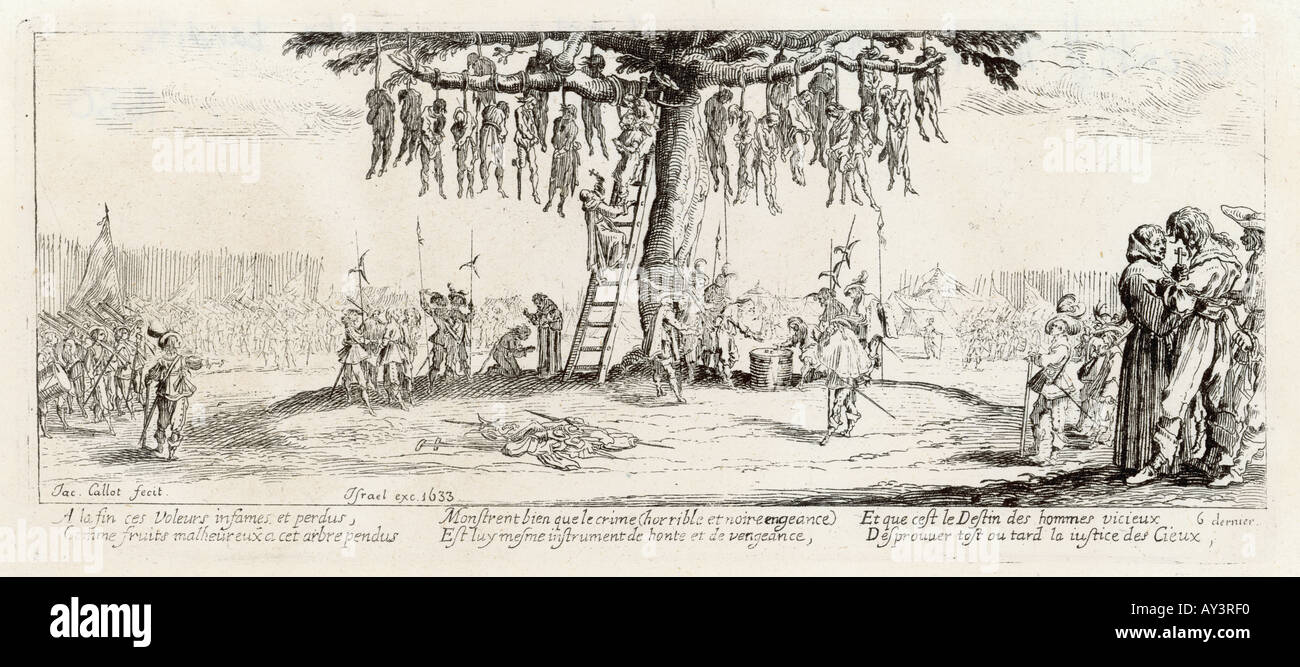 Iac. Callot fecit.
Israel exc. 1633
A la fin ces Voleurs infames et perdus,
Comme fruits malheureux a cet arbre pendus
Monstrent bien que le crime (horrible et noire engeance)
Est luy mesme instrument de honte et de vengeance,
Et que cest le Destin des hommes vicieux
Desprouuer tost ou tard la iustice des Cieux,
6 dernier.
alamy stock photo
alamy
www.alamy.com
AY3RF0